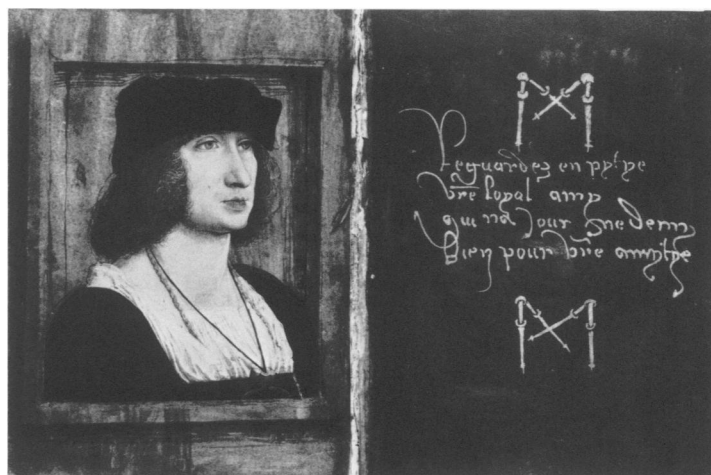 Reguardez en pytye
vre loyal amy
qui na Jour ne demy
Bien pour vre amytye